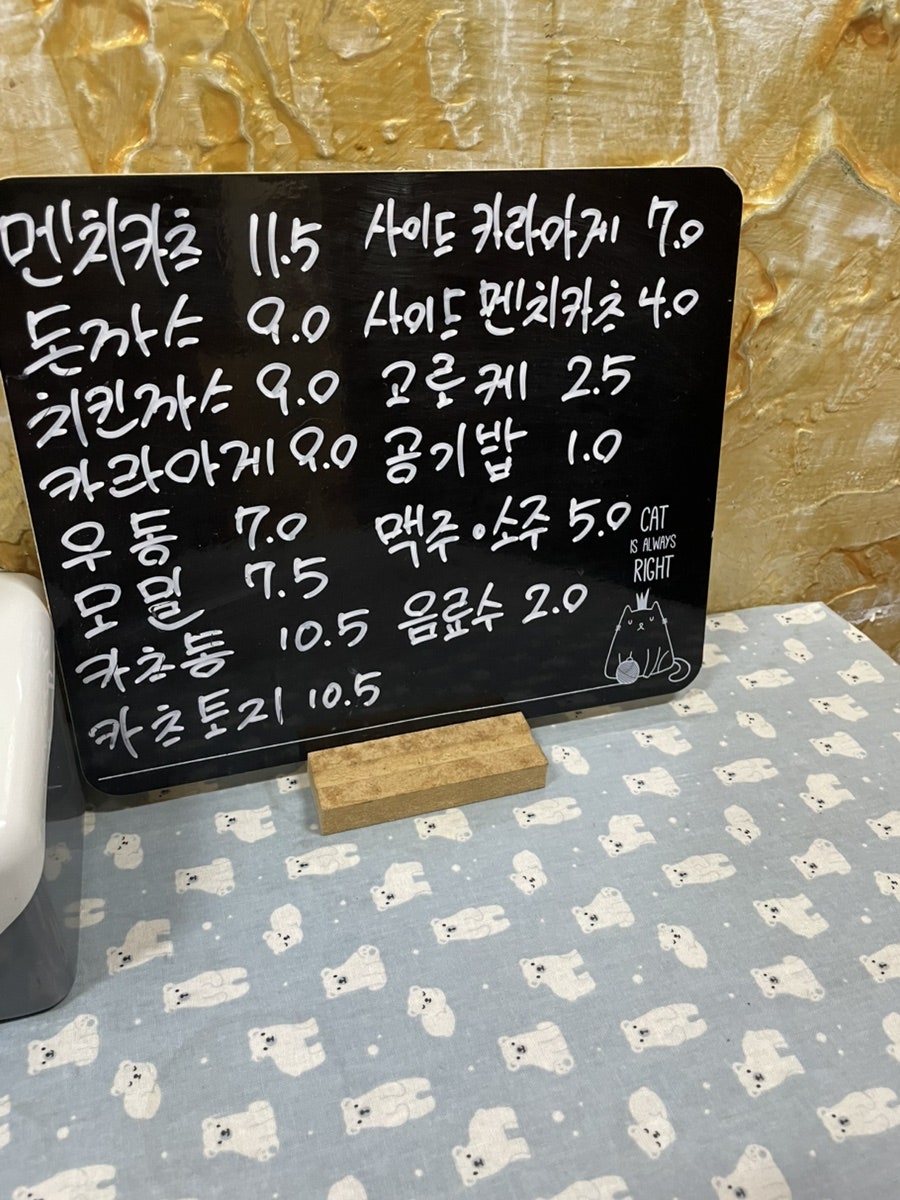 멘치카츠 11.5
돈까스 9.0
치킨까스 9.0
카라아게 9.0
우동 7.0
모밀 7.5
카츠동 10.5
카츠토지 10.5
사이드 카라아게 7.0
사이드 멘치카츠 4.0
고로케 2.5
공기밥 1.0
맥주·소주 5.0
음료수 2.0
CAT
IS ALWAYS
RIGHT